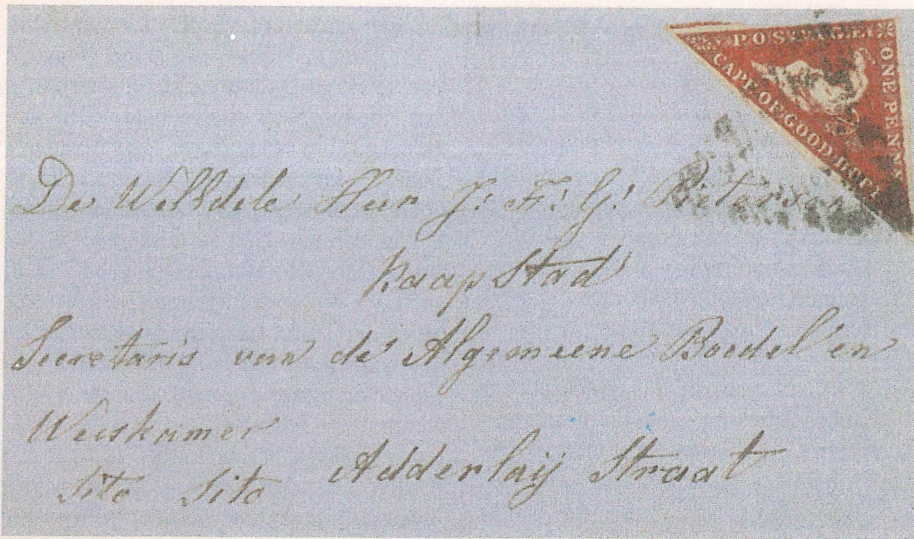 POSTAGE
ONE PENNY
CAPE OF GOOD HOPE
De WelEdele Heer J: F: G: Pietersen
Kaap Stad
Secretaris van de Algemeene Boedel en
Weiskamer
Sito Sito Adderlaij Straat